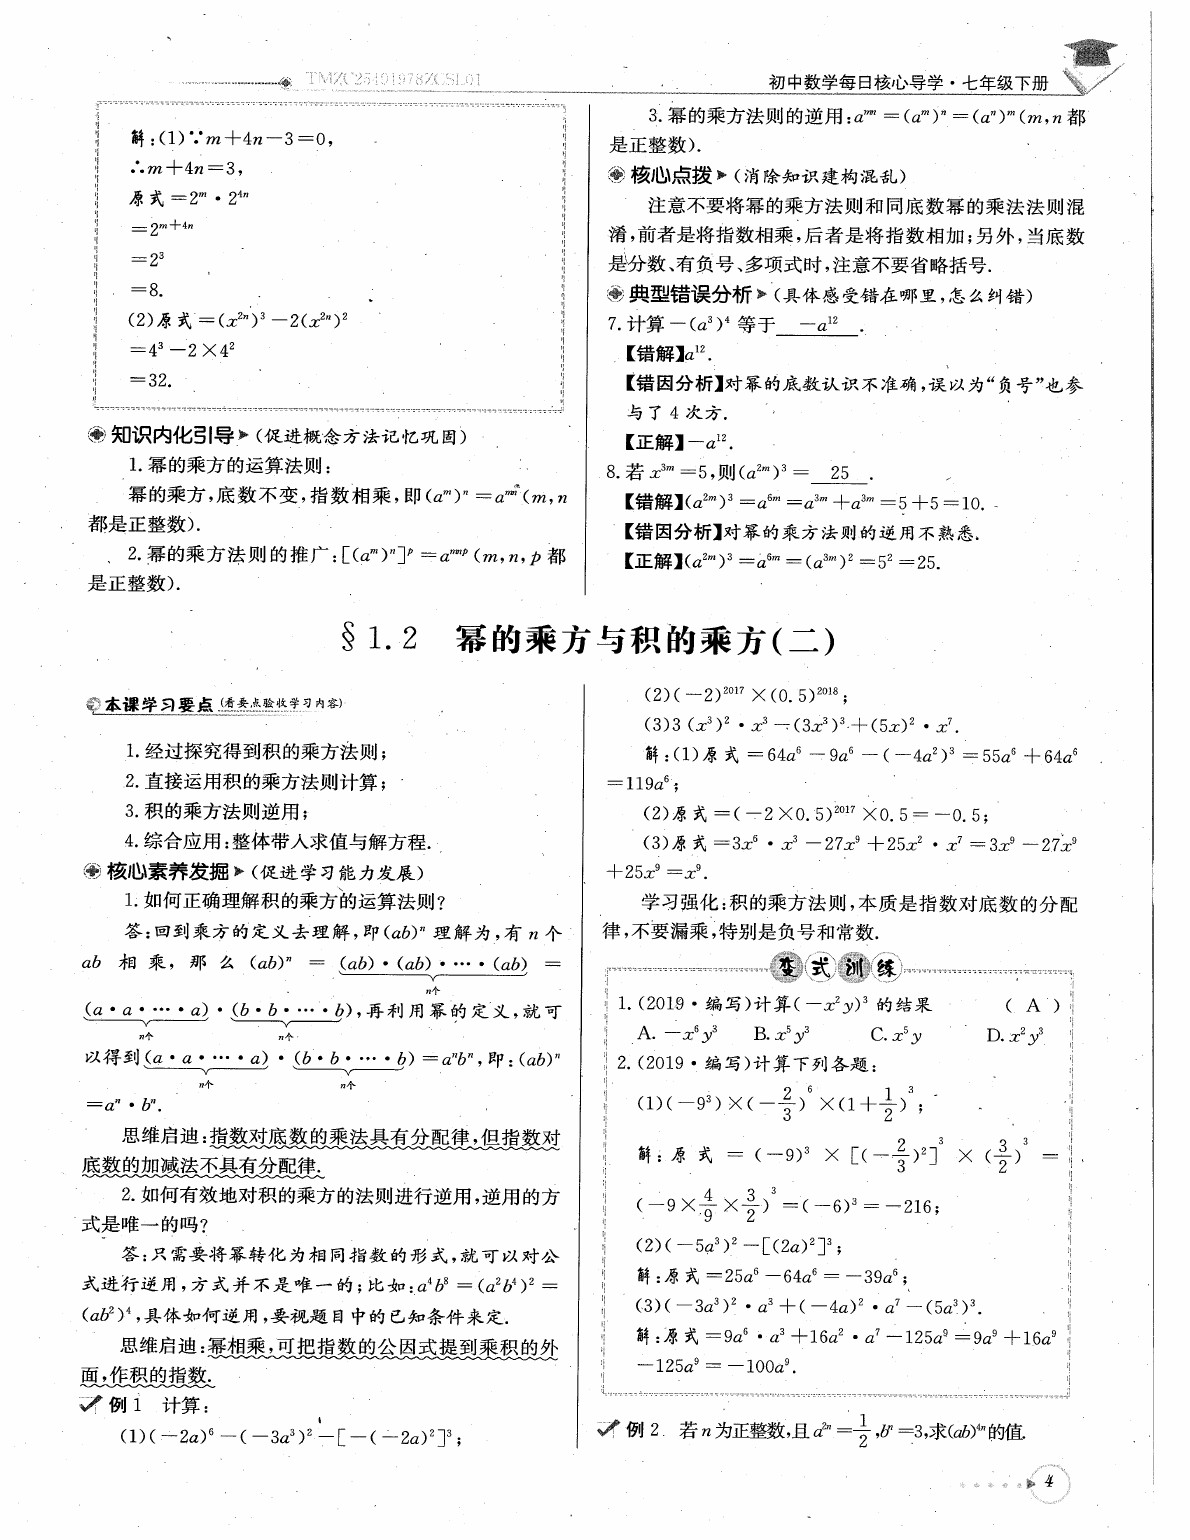 TMZC25491978ZCSL01
初中数学每日核心导学·七年级下册
解:(1)∵m+4n-3=0,
∴m+4n=3,
原式=2ᵐ·2⁴ⁿ
=2ᵐ⁺⁴ⁿ
=2³
=8.
(2)原式=(x²ⁿ)³-2(x²ⁿ)²
=4³-2×4²
=32.
知识内化引导(促进概念方法记忆巩固)
1.幂的乘方的运算法则:
幂的乘方,底数不变,指数相乘,即(aᵐ)ⁿ=aᵐⁿ(m,n
都是正整数).
2.幂的乘方法则的推广:[(aᵐ)ⁿ]ᵖ=aᵐⁿᵖ(m,n,p都
是正整数).
3.幂的乘方法则的逆用:aᵐⁿ=(aᵐ)ⁿ=(aⁿ)ᵐ(m,n都
是正整数).
核心点拨(消除知识建构混乱)
注意不要将幂的乘方法则和同底数幂的乘法法则混
淆,前者是将指数相乘,后者是将指数相加;另外,当底数
是分数、有负号、多项式时,注意不要省略括号.
典型错误分析(具体感受错在哪里,怎么纠错)
7.计算-(a³)⁴等于 -a¹² .
【错解】a¹².
【错因分析】对幂的底数认识不准确,误以为“负号”也参
与了4次方.
【正解】-a¹².
8.若x³ᵐ=5,则(a²ᵐ)³= 25 .
【错解】(a²ᵐ)³=a⁶ᵐ=a³ᵐ+a³ᵐ=5+5=10.
【错因分析】对幂的乘方法则的逆用不熟悉.
【正解】(a²ᵐ)³=a⁶ᵐ=(a³ᵐ)²=5²=25.
§1.2 幂的乘方与积的乘方(二)
本课学习要点(看要点验收学习内容)
1.经过探究得到积的乘方法则;
2.直接运用积的乘方法则计算;
3.积的乘方法则逆用;
4.综合应用:整体带入求值与解方程.
核心素养发掘(促进学习能力发展)
1.如何正确理解积的乘方的运算法则?
答:回到乘方的定义去理解,即(ab)ⁿ理解为,有n个
ab相乘,那么(ab)ⁿ=(ab)·(ab)·…·(ab)=
n个
(a·a·…·a)·(b·b·…·b),再利用幂的定义,就可
n个 n个
以得到(a·a·…·a)·(b·b·…·b)=aⁿbⁿ,即:(ab)ⁿ
n个 n个
=aⁿ·bⁿ.
思维启迪:指数对底数的乘法具有分配律,但指数对
底数的加减法不具有分配律.
2.如何有效地对积的乘方的法则进行逆用,逆用的方
式是唯一的吗?
答:只需要将幂转化为相同指数的形式,就可以对公
式进行逆用,方式并不是唯一的;比如:a⁴b⁸=(a²b⁴)²=
(ab²)⁴,具体如何逆用,要视题目中的已知条件来定.
思维启迪:幂相乘,可把指数的公因式提到乘积的外
面,作积的指数.
例1 计算:
(1)(-2a)⁶-(-3a³)²-[-(-2a)²]³;
(2)(-2)²⁰¹⁷×(0.5)²⁰¹⁸;
(3)3(x³)²·x³-(3x³)³+(5x)²·x⁷.
解:(1)原式=64a⁶-9a⁶-(-4a²)³=55a⁶+64a⁶
=119a⁶;
(2)原式=(-2×0.5)²⁰¹⁷×0.5=-0.5;
(3)原式=3x⁶·x³-27x⁹+25x²·x⁷=3x⁹-27x⁹
+25x⁹=x⁹.
学习强化:积的乘方法则,本质是指数对底数的分配
律,不要漏乘,特别是负号和常数.
变式训练
1.(2019·编写)计算(-x²y)³的结果 ( A )
A.-x⁶y³ B.x⁵y³ C.x⁵y D.x²y³
2.(2019·编写)计算下列各题:
(1)(-9³)×(-2/3)⁶×(1+1/2)³;
解:原式=(-9)³×[(-2/3)²]³×(3/2)³=
(-9×4/9×3/2)³=(-6)³=-216;
(2)(-5a³)²-[(2a)²]³;
解:原式=25a⁶-64a⁶=-39a⁶;
(3)(-3a³)²·a³+(-4a)²·a⁷-(5a³)³.
解:原式=9a⁶·a³+16a²·a⁷-125a⁹=9a⁹+16a⁹
-125a⁹=-100a⁹.
例2 若n为正整数,且a²ⁿ=1/2,bⁿ=3,求(ab)⁴ⁿ的值.
4